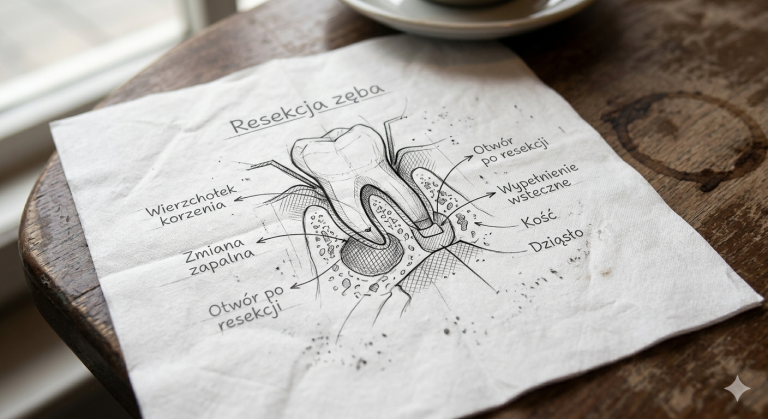 Resekcja zęba
Wierzchołek
korzenia
Zmiana
zapalna
Otwór po
resekcji
Otwór
po resekcji
Wypełnienie
wsteczne
Kość
Dziąsło